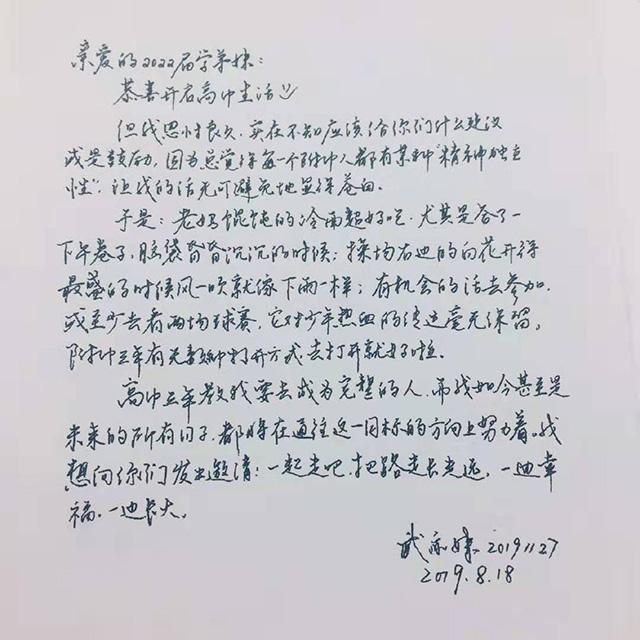 亲爱的2022届学弟妹:
恭喜开启高中生活
但我思忖良久,实在不知应该给你们什么建议
或是鼓励,因为总觉得每一个附中人都有某种"精神独立
性",让我的话无可避免地显得苍白。
于是:老妈馄饨的冷面超好吃,尤其是答了一
下午卷子,脑袋昏昏沉沉的时候;操场右边的白花开得
最盛的时候风一吹就像下雨一样;有机会的话去参加,
或至少去看两场球赛,它对少年热血的传达毫无保留。
附中三年有无数种打开方式,去打开就好啦。
高中三年教我要去成为完整的人,而我如今甚至是
未来的所有日子,都将在通往这一目标的方向上努力着。我
想向你们发出邀请:一起走吧,把路走长走远,一边幸
福,一边长大。
武 20191127
2019.8.18